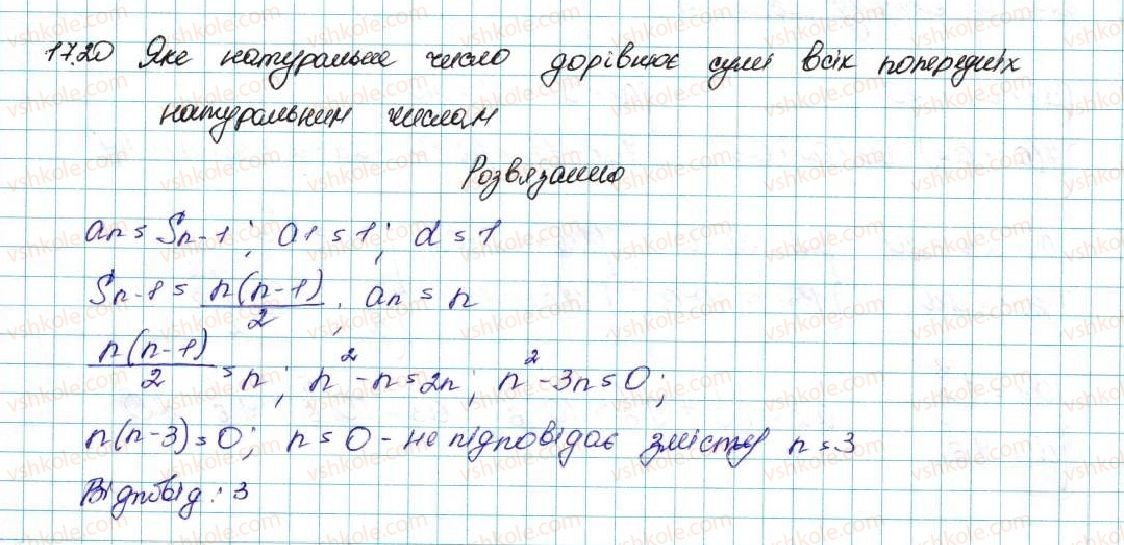 17.20 Яке натуральне число дорівнює сумі всіх попередніх
натуральним числам
Розвязання
an = Sn-1; a1 = 1; d = 1
Sn-1 = n(n-1)/2; an = n
n(n-1)/2 = n; n² - n = 2n; n² - 3n = 0;
n(n-3) = 0; n = 0 - не підповідає змісту n = 3
Відповід: 3